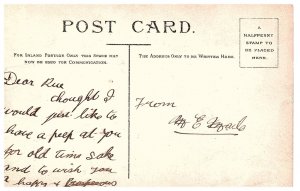 POST CARD.
A
HALFPENNY
STAMP TO
BE PLACED
HERE.
FOR INLAND POSTAGE ONLY THIS SPACE MAY
NOW BE USED FOR COMMUNICATION.
THE ADDRESS ONLY TO BE WRITTEN HERE.
Dear
thought I
would just like to
have a peep at you
for old time sake
and to wish you
a happy &
From
E